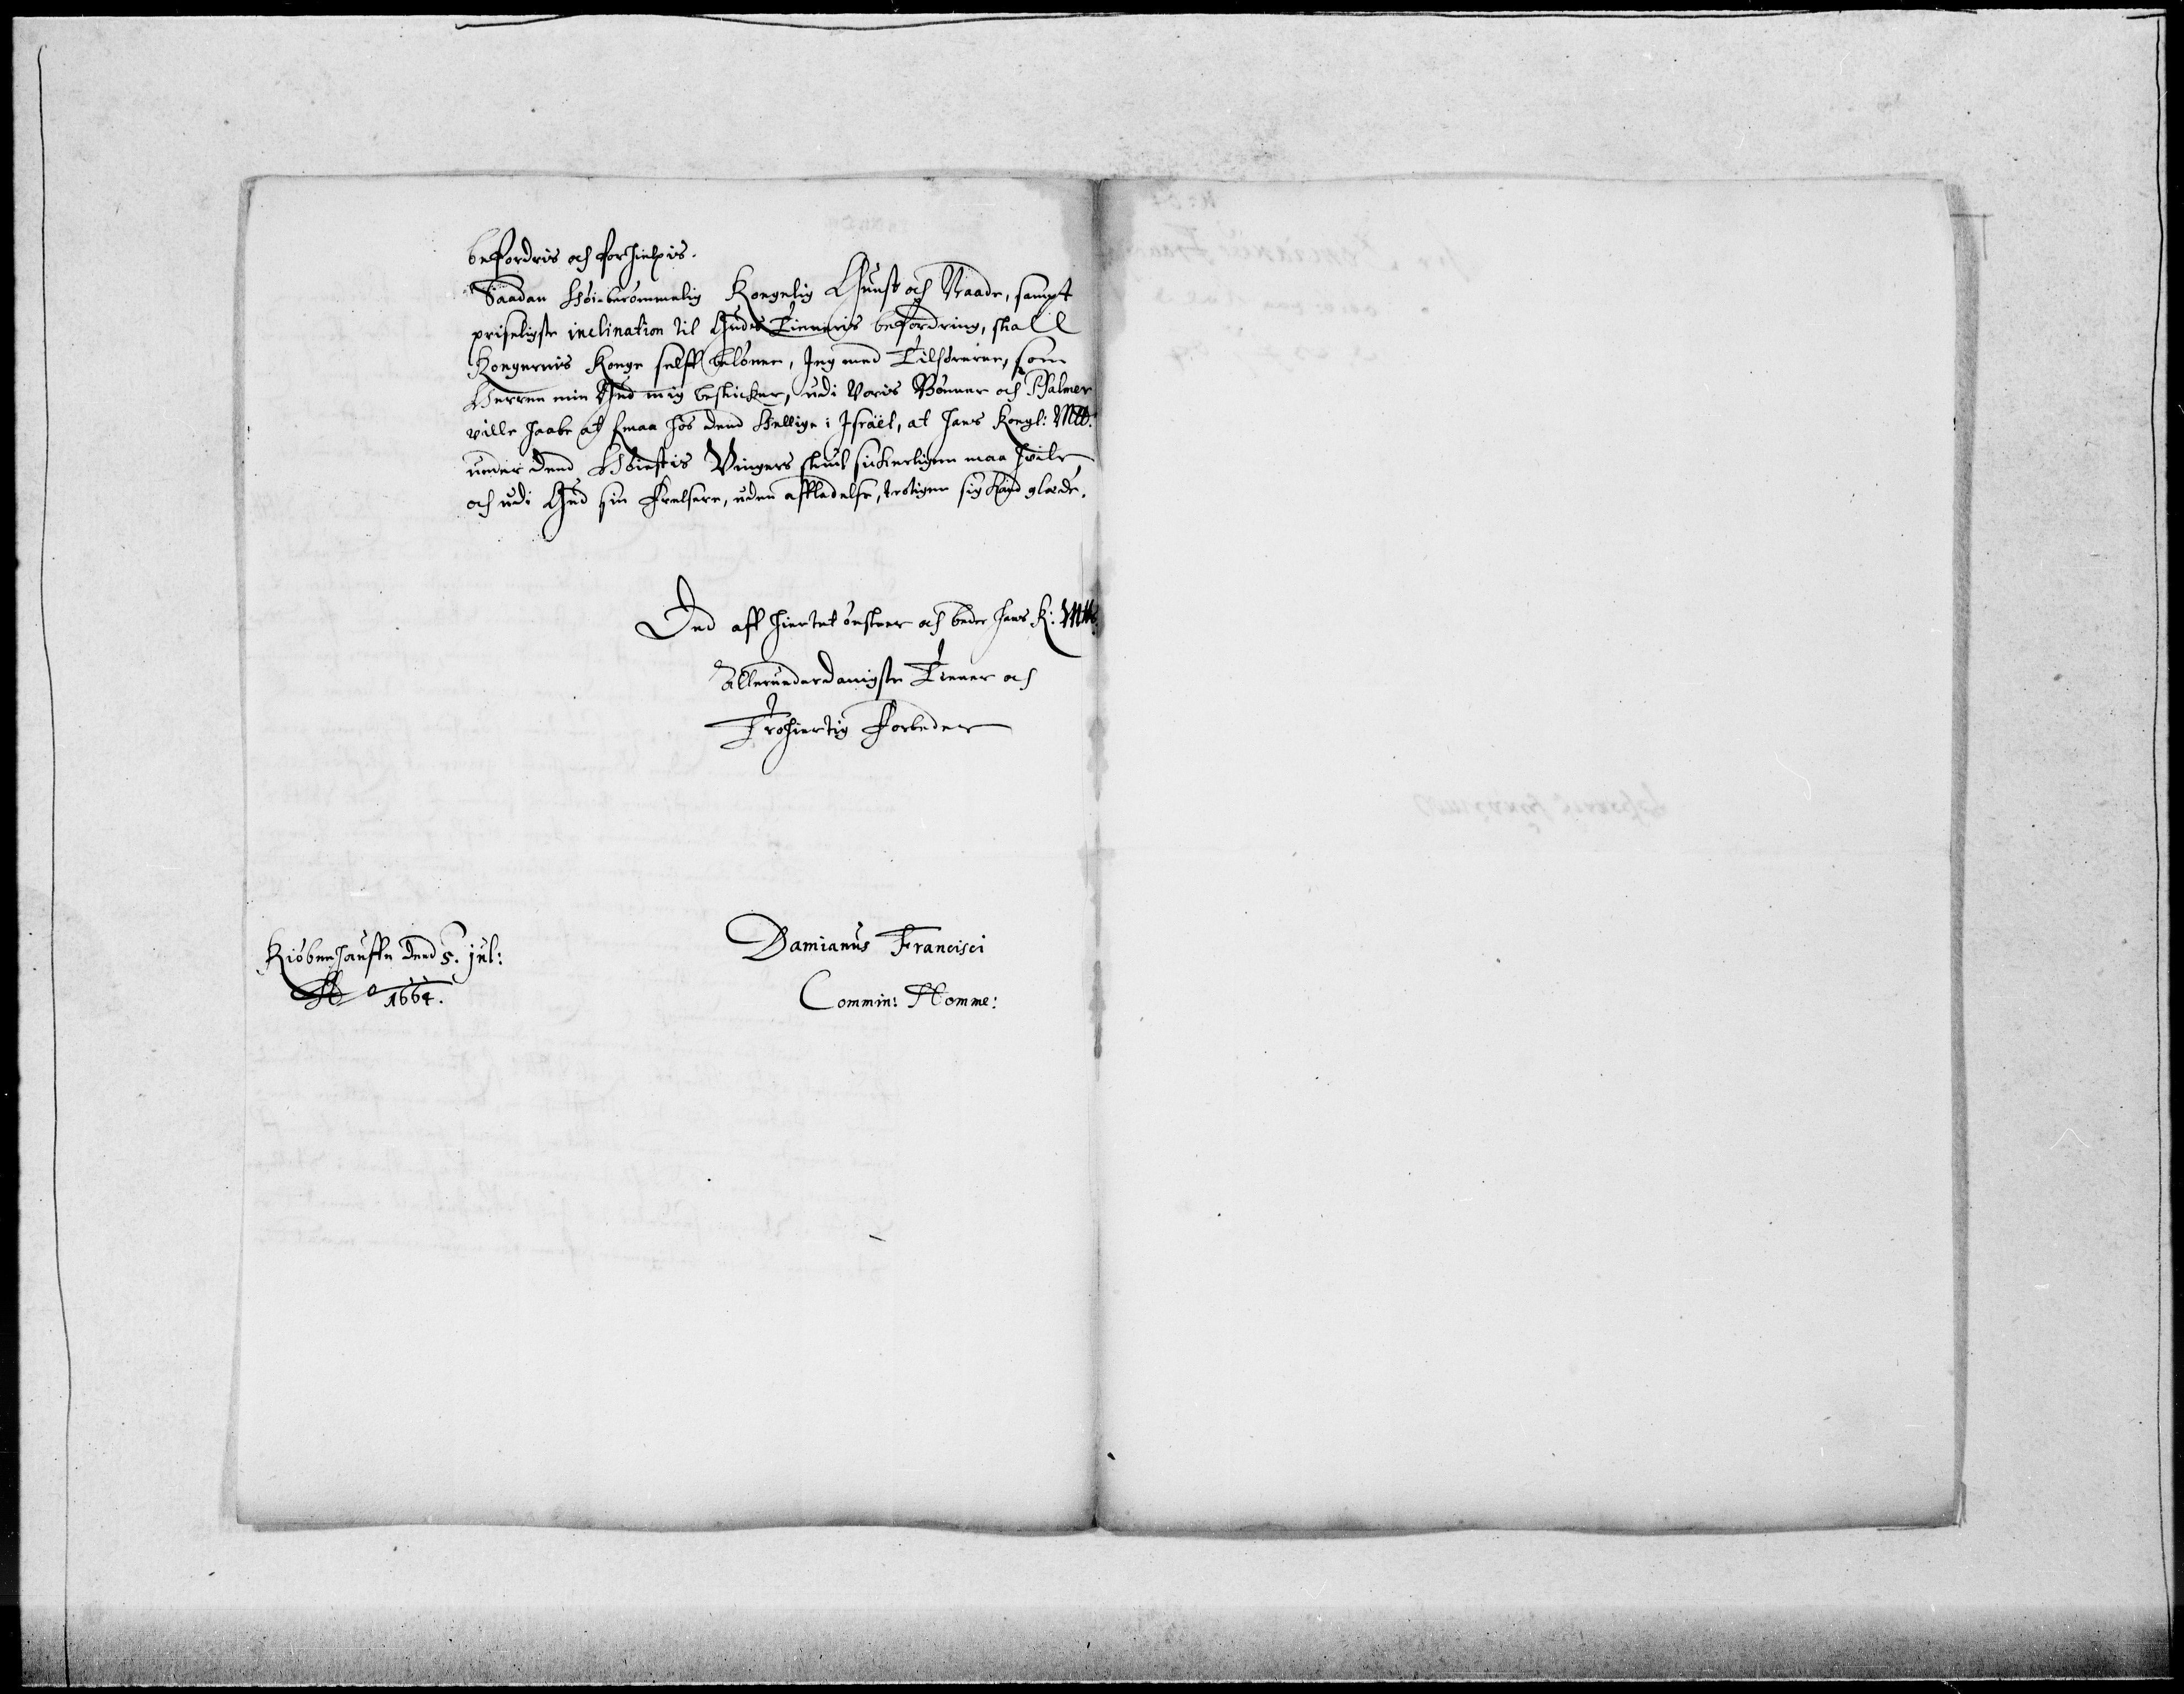 befordris och forhielpis.
Saadan Höi-berömmelig Kongelig Gunst och Naade, sampt
priseligste inclination til Guds Tieneris befordring, skall
Kongernis Konge selff belönne, Jeg med Tilhörerne, som
Herren min Gud mig beskicker, udi Voris Bönner och Psalmer
ville haabe at kmaa hos dend Hellige i Israël, at hans Kongl: Mtt:
under dend Höiestis Vingers skiul sickerligen maa hvile
och udi Gud sin Frelsere, uden affladelse, tröligen sig kand glæde.
Ded aff hiertet önsker och beder hans K: Mtts:
Allerunderdanigste Tiener och
Trohiertig Forbeder
Kiöbenhauffn dend 5. jul:
Ao 1664.
Damianus Francisci
Commin: Homme: